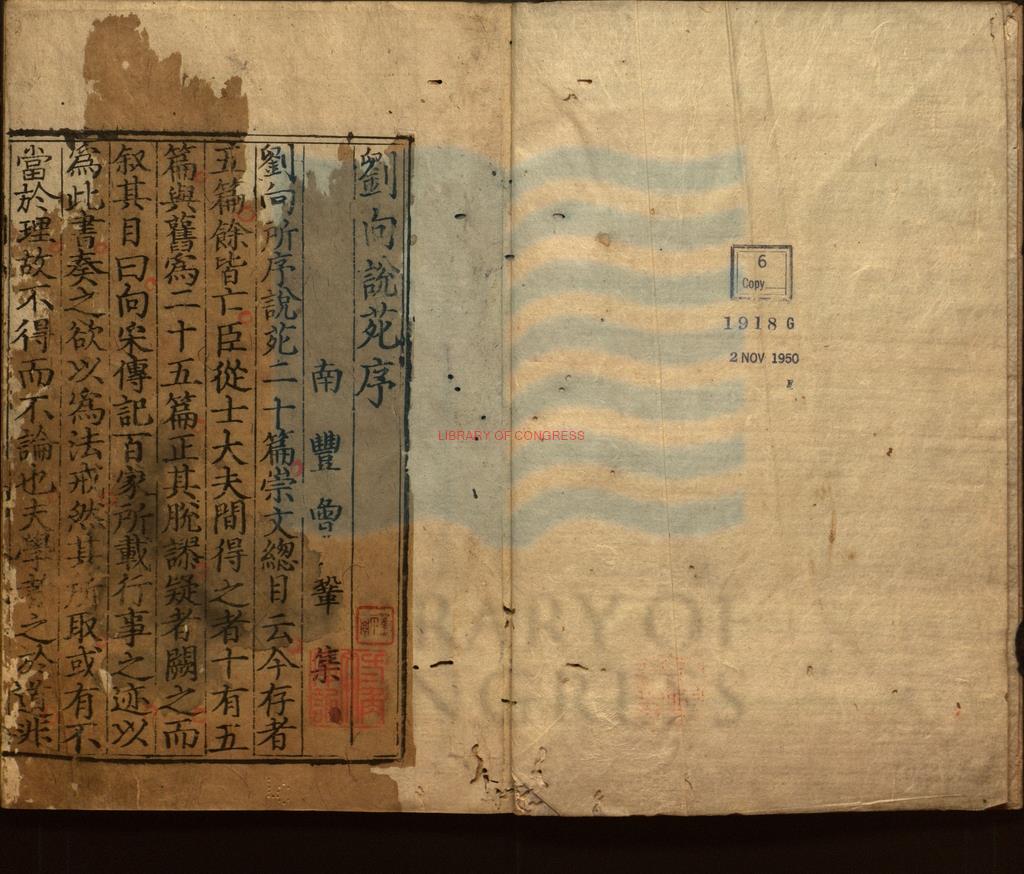 劉向說苑序
南豐曾鞏集
劉向所序說苑二十篇崇文總目云今存者
五篇餘皆亡臣從士大夫間得之者十有五
篇與舊為二十五篇正其脫謬疑者闕之而
叙其目曰向采傳記百家所載行事之迹以
為此書奏之欲以為法戒然其所取或有不
當於理故不得而不論也夫學者之於道非
LIBRARY OF CONGRESS
6
Copy
1918 G
2 NOV 1950
LIBRARY OF
CONGRESS